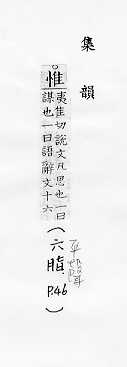 集韻
惟
夷隹切說文凡思也一曰
謀也一曰語辭文十六
(六脂 P.46)